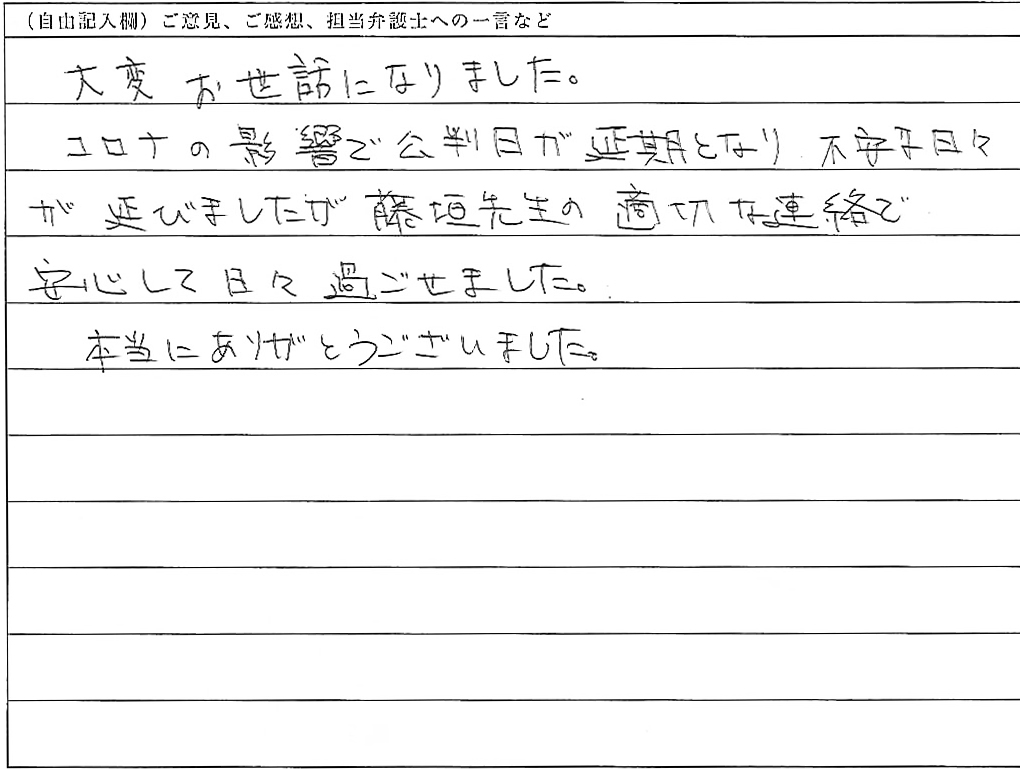 （自由記入欄）ご意見、ご感想、担当弁護士への一言など
大変 お世話になりました。
コロナの影響で公判日が延期となり 不安な日々
が延びましたが藤垣先生の適切な連絡で
安心して日々過ごせました。
本当にありがとうございました。